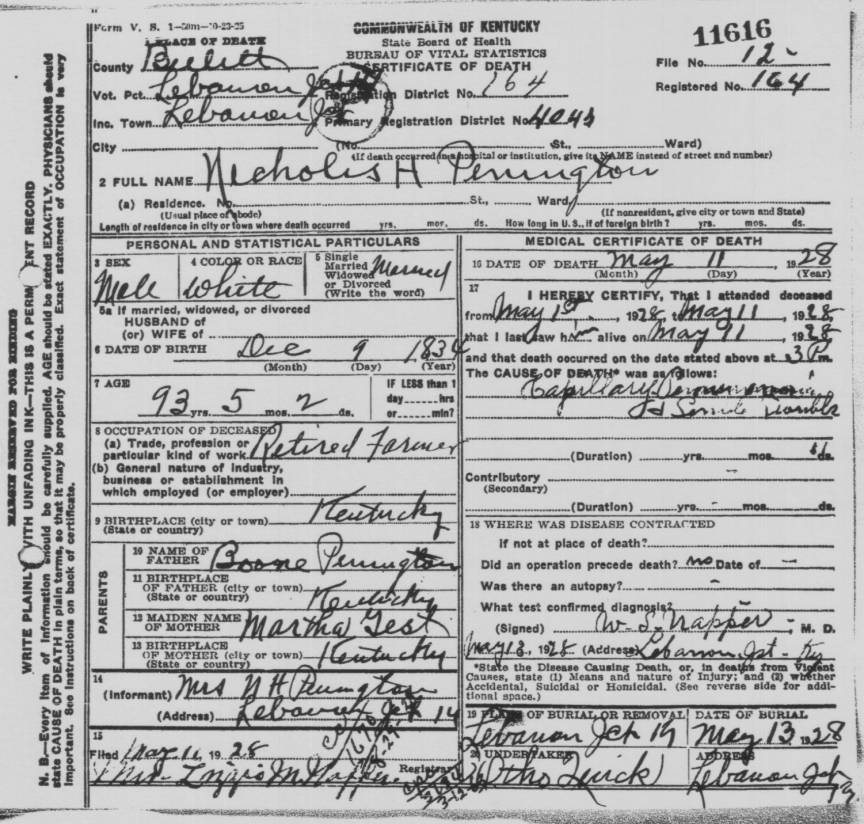 Form V. S. 1—50m—10-23-25
COMMONWEALTH OF KENTUCKY
State Board of Health
BUREAU OF VITAL STATISTICS
CERTIFICATE OF DEATH
11616
File No. 12-
Registered No. 164
PLACE OF DEATH
County Bullitt
Vot. Pct. Lebanon Jct Registration District No. 164
Inc. Town Lebanon Jct Primary Registration District No. 4043
City (No. St., Ward)
(If death occurred in a hospital or institution, give its NAME instead of street and number)
2 FULL NAME Nicholis H Penington
(a) Residence. No. St., Ward,
(Usual place of abode) (If nonresident, give city or town and State)
Length of residence in city or town where death occurred yrs. mos. ds. How long in U. S., if of foreign birth? yrs. mos. ds.
PERSONAL AND STATISTICAL PARTICULARS
3 SEX Male
4 COLOR OR RACE White
5 Single
Married
Widowed
or Divorced
(Write the word)
Married
5a If married, widowed, or divorced
HUSBAND of
(or) WIFE of
6 DATE OF BIRTH Dec 9 1834
(Month) (Day) (Year)
7 AGE 93 yrs. 5 mos. 2 ds.
IF LESS than 1
day hrs
or min?
8 OCCUPATION OF DECEASED
(a) Trade, profession or
particular kind of work Retired Farmer
(b) General nature of industry,
business or establishment in
which employed (or employer)
9 BIRTHPLACE (city or town) Kentucky
(State or country)
PARENTS
10 NAME OF
FATHER Boone Penington
11 BIRTHPLACE
OF FATHER (city or town)
(State or country) Kentucky
12 MAIDEN NAME
OF MOTHER Martha Gest
13 BIRTHPLACE
OF MOTHER (city or town)
(State or country) Kentucky
14
(Informant) Mrs N H Penington
(Address) Lebanon Jct
15
Filed May 11, 1928
Registrar
MEDICAL CERTIFICATE OF DEATH
16 DATE OF DEATH May 11 1928
(Month) (Day) (Year)
17
I HEREBY CERTIFY, That I attended deceased
from May 1st, 1928, to May 11, 1928
that I last saw him alive on May 11, 1928
and that death occurred on the date stated above at 3 P m.
The CAUSE OF DEATH* was as follows:
Capillary
(Duration) yrs. mos. ds.
Contributory
(Secondary)
(Duration) yrs. mos. ds.
18 WHERE WAS DISEASE CONTRACTED
If not at place of death?
Did an operation precede death? no Date of
Was there an autopsy?
What test confirmed diagnosis?
(Signed) W. S. Napper, M. D.
May 13, 1928 (Address) Lebanon Jct- Ky
*State the Disease Causing Death, or, in deaths from Violent
Causes, state (1) Means and nature of Injury; and (2) whether
Accidental, Suicidal or Homicidal. (See reverse side for addi-
tional space.)
19 PLACE OF BURIAL OR REMOVAL Lebanon Jct Ky
DATE OF BURIAL May 13 1928
20 UNDERTAKER Quick
ADDRESS Lebanon Jct
MARGIN RESERVED FOR BINDING
WRITE PLAINLY WITH UNFADING INK—THIS IS A PERMANENT RECORD
N. B.—Every item of information should be carefully supplied. AGE should be stated EXACTLY. PHYSICIANS should
state CAUSE OF DEATH in plain terms, so that it may be properly classified. Exact statement of OCCUPATION is very
important. See instructions on back of certificate.